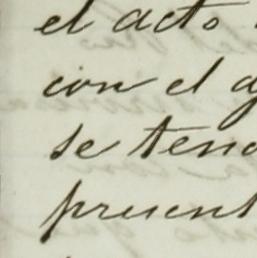 el acto
con el a
se tend
present